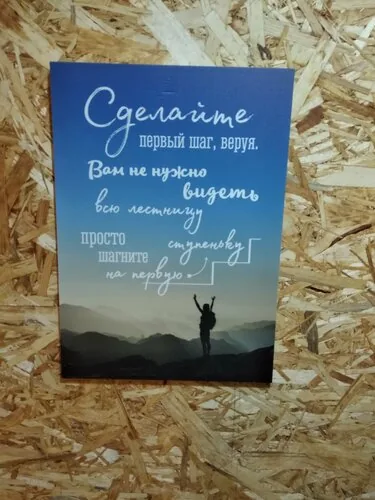 Сделайте
первый шаг, веруя.
Вам не нужно
видеть
всю лестницу
просто
шагните
на первую
ступеньку